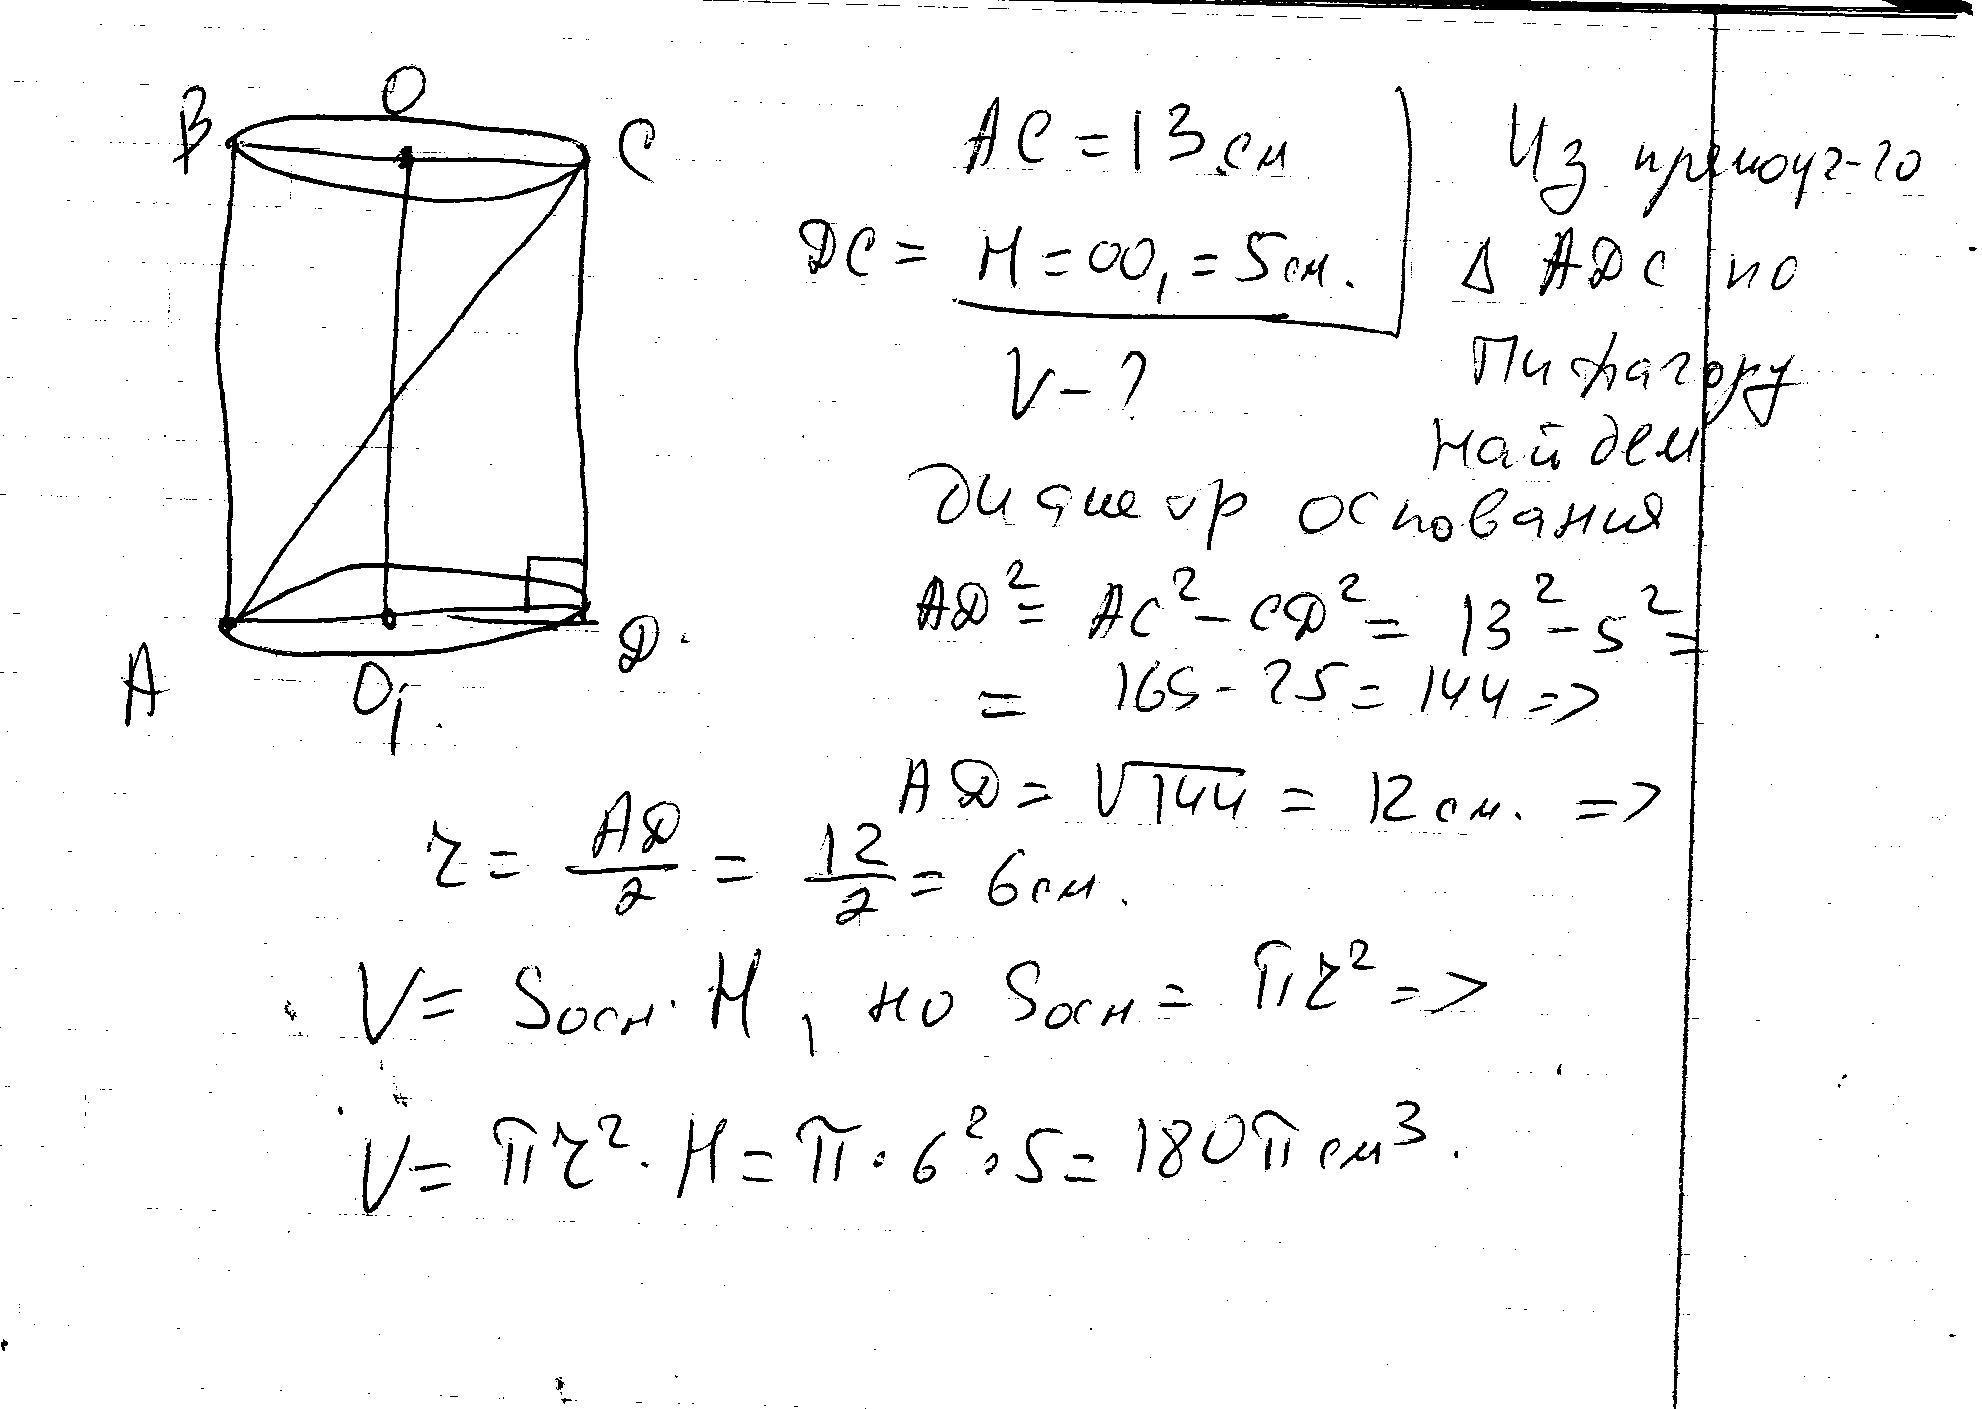 B
O
C
A
O₁
D
AC = 13 см
DC = H = OO₁ = 5 см.
V - ?
Из прямоуг-го
Δ ADC по
Пифагору
найдем
диаметр основания
AD² = AC² - CD² = 13² - 5² =
= 169 - 25 = 144 =>
AD = √144 = 12 см. =>
r = AD/2 = 12/2 = 6 см.
V = Sосн · H, но Sосн = πr² =>
V = πr² · H = π · 6² · 5 = 180π см³.